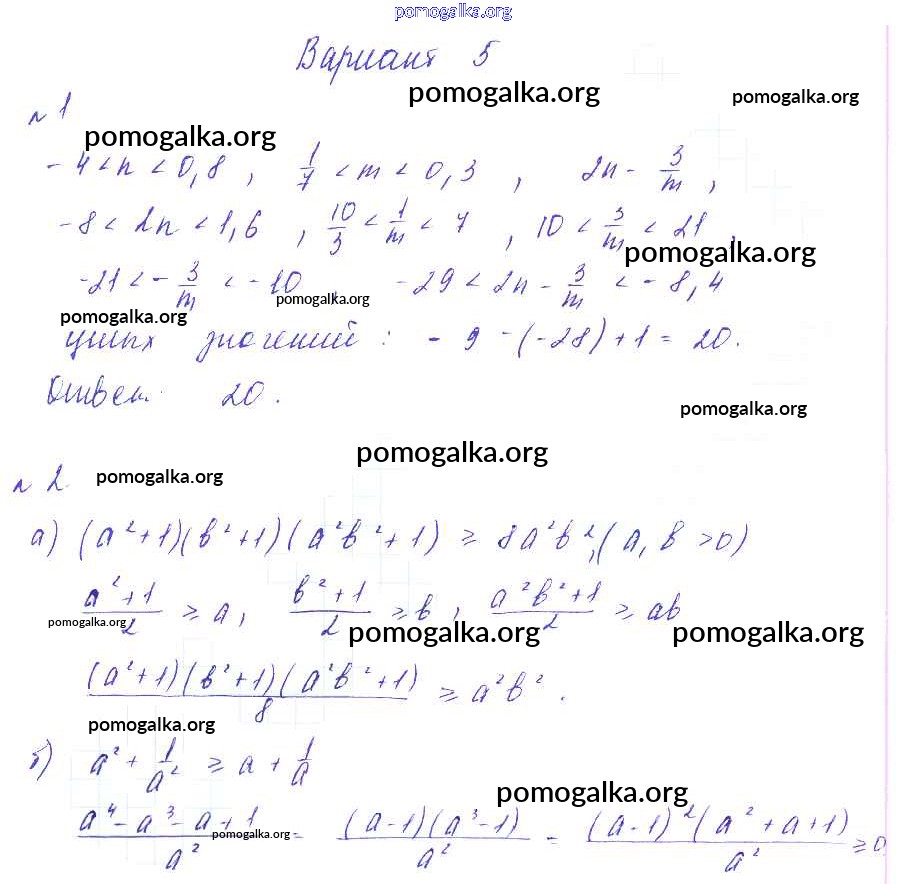 pomogalka.org
Вариант 5
pomogalka.org pomogalka.org
№ 1
pomogalka.org
-4 < n < 0,8 , 1/7 < m < 0,3 , 2n - 3/m ,
-8 < 2n < 1,6 , 10/3 < 1/m < 7 , 10 < 3/m < 21 ,
pomogalka.org
-21 < - 3/m < -10 -29 < 2n - 3/m < -8,4
pomogalka.org
pomogalka.org
целых значений : -9 - (-28) + 1 = 20.
Ответ: 20.
pomogalka.org
pomogalka.org
№ 2 pomogalka.org
а) (a²+1)(b²+1)(a²b²+1) ≥ 8a²b², (a, b > 0)
(a²+1)/2 ≥ a, (b²+1)/2 ≥ b, (a²b²+1)/2 ≥ ab
pomogalka.org pomogalka.org pomogalka.org
(a²+1)(b²+1)(a²b²+1)/8 ≥ a²b².
pomogalka.org
б) a² + 1/a² ≥ a + 1/a
pomogalka.org
(a⁴-a³-a+1)/a² = (a-1)(a³-1)/a² = (a-1)²(a²+a+1)/a² ≥ 0
pomogalka.org